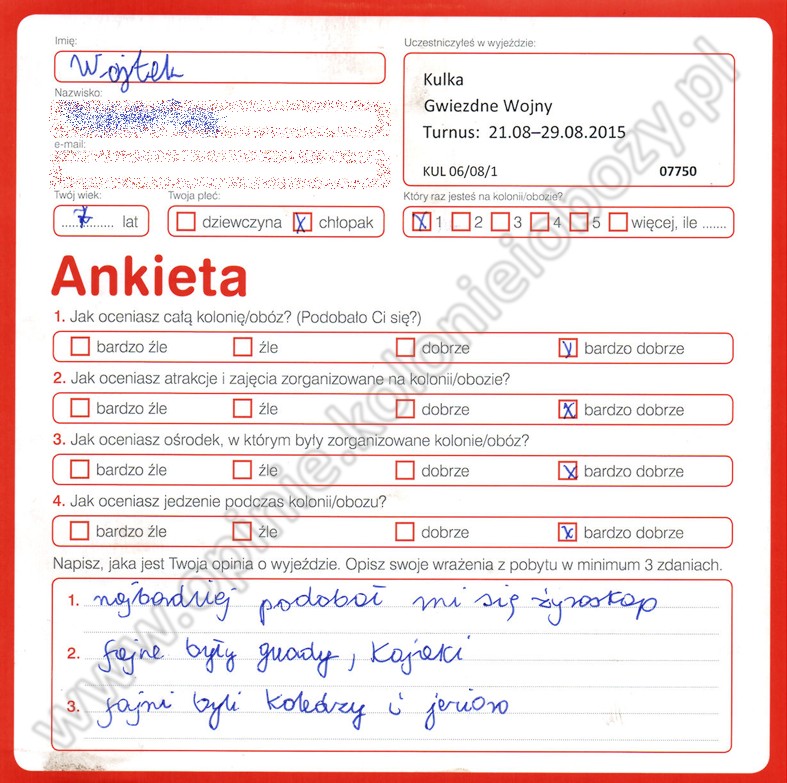 Imię:
Wojtek
Uczestniczyłeś w wyjeździe:
Kulka
Gwiezdne Wojny
Turnus: 21.08–29.08.2015
KUL 06/08/1 07750
Nazwisko:
e-mail:
Twój wiek:
7 lat
Twoja płeć:
dziewczyna X chłopak
Który raz jesteś na kolonii/obozie?
X 1 2 3 4 5 więcej, ile .......
Ankieta
1. Jak oceniasz całą kolonię/obóz? (Podobało Ci się?)
bardzo źle źle dobrze X bardzo dobrze
2. Jak oceniasz atrakcje i zajęcia zorganizowane na kolonii/obozie?
bardzo źle źle dobrze X bardzo dobrze
3. Jak oceniasz ośrodek, w którym były zorganizowane kolonie/obóz?
bardzo źle źle dobrze X bardzo dobrze
4. Jak oceniasz jedzenie podczas kolonii/obozu?
bardzo źle źle dobrze X bardzo dobrze
Napisz, jaka jest Twoja opinia o wyjeździe. Opisz swoje wrażenia z pobytu w minimum 3 zdaniach.
1. najbardziej podobał mi się żyroskop
2. fajne były quady, kajaki
3. fajni byli koledzy i
www.opinie.kolonieiobozy.pl